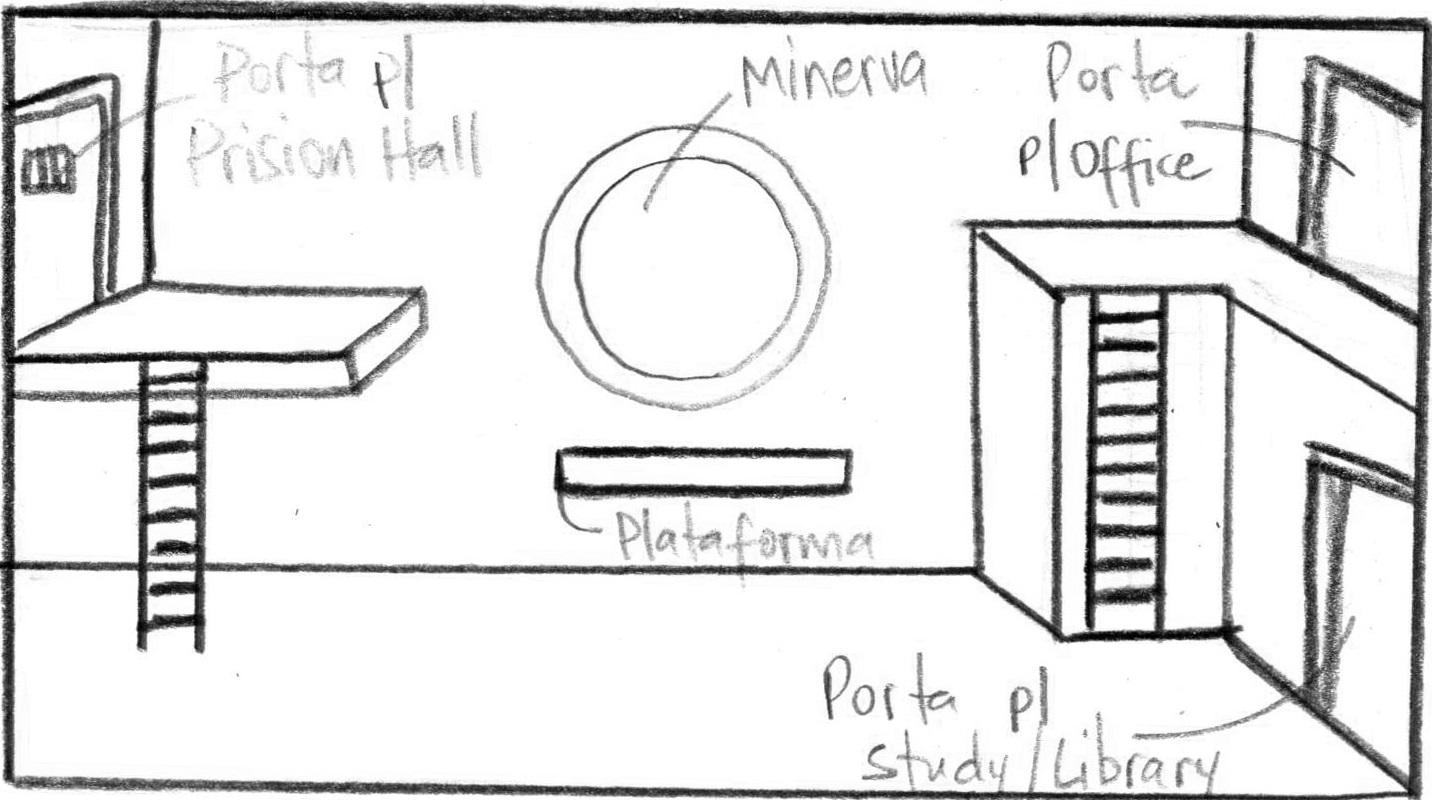 Porta p/
Prision Hall
Minerva
Porta
p/Office
Plataforma
Porta p/
Study/Library